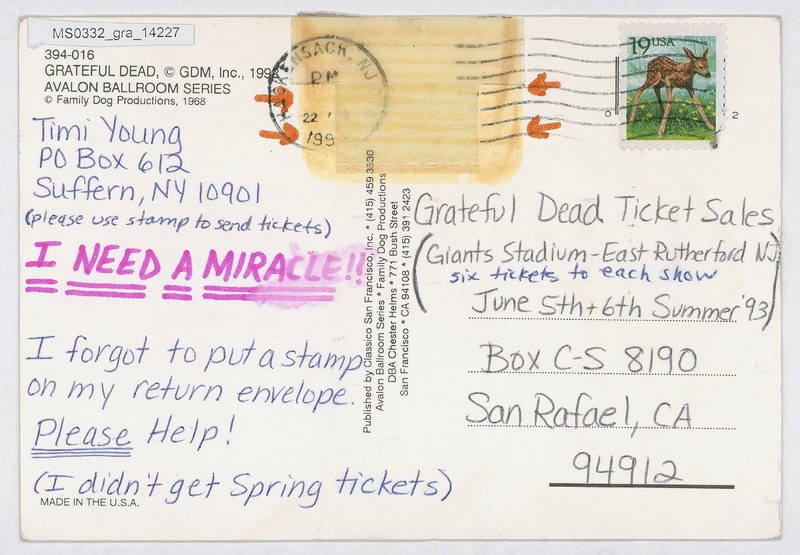 MS0332_gra_14227
394-016
GRATEFUL DEAD, © GDM, Inc., 1992
AVALON BALLROOM SERIES
© Family Dog Productions, 1968
HACKENSACK, NJ
PM
22
199
19 USA
0
2
Timi Young
PO Box 612
Suffern, NY 10901
(please use stamp to send tickets)
I NEED A MIRACLE!!
I forgot to put a stamp
on my return envelope.
Please Help!
(I didn't get Spring tickets)
MADE IN THE U.S.A.
Published by Classico San Francisco, Inc. * (415) 459 3830
Avalon Ballroom Series * Family Dog Productions
DBA Chester Helms * 771 Bush Street
San Francisco * CA 94108 * (415) 391 2423
Grateful Dead Ticket Sales
(Giants Stadium - East Rutherford NJ
six tickets to each show
June 5th + 6th Summer '93)
Box C-S 8190
San Rafael, CA
94912